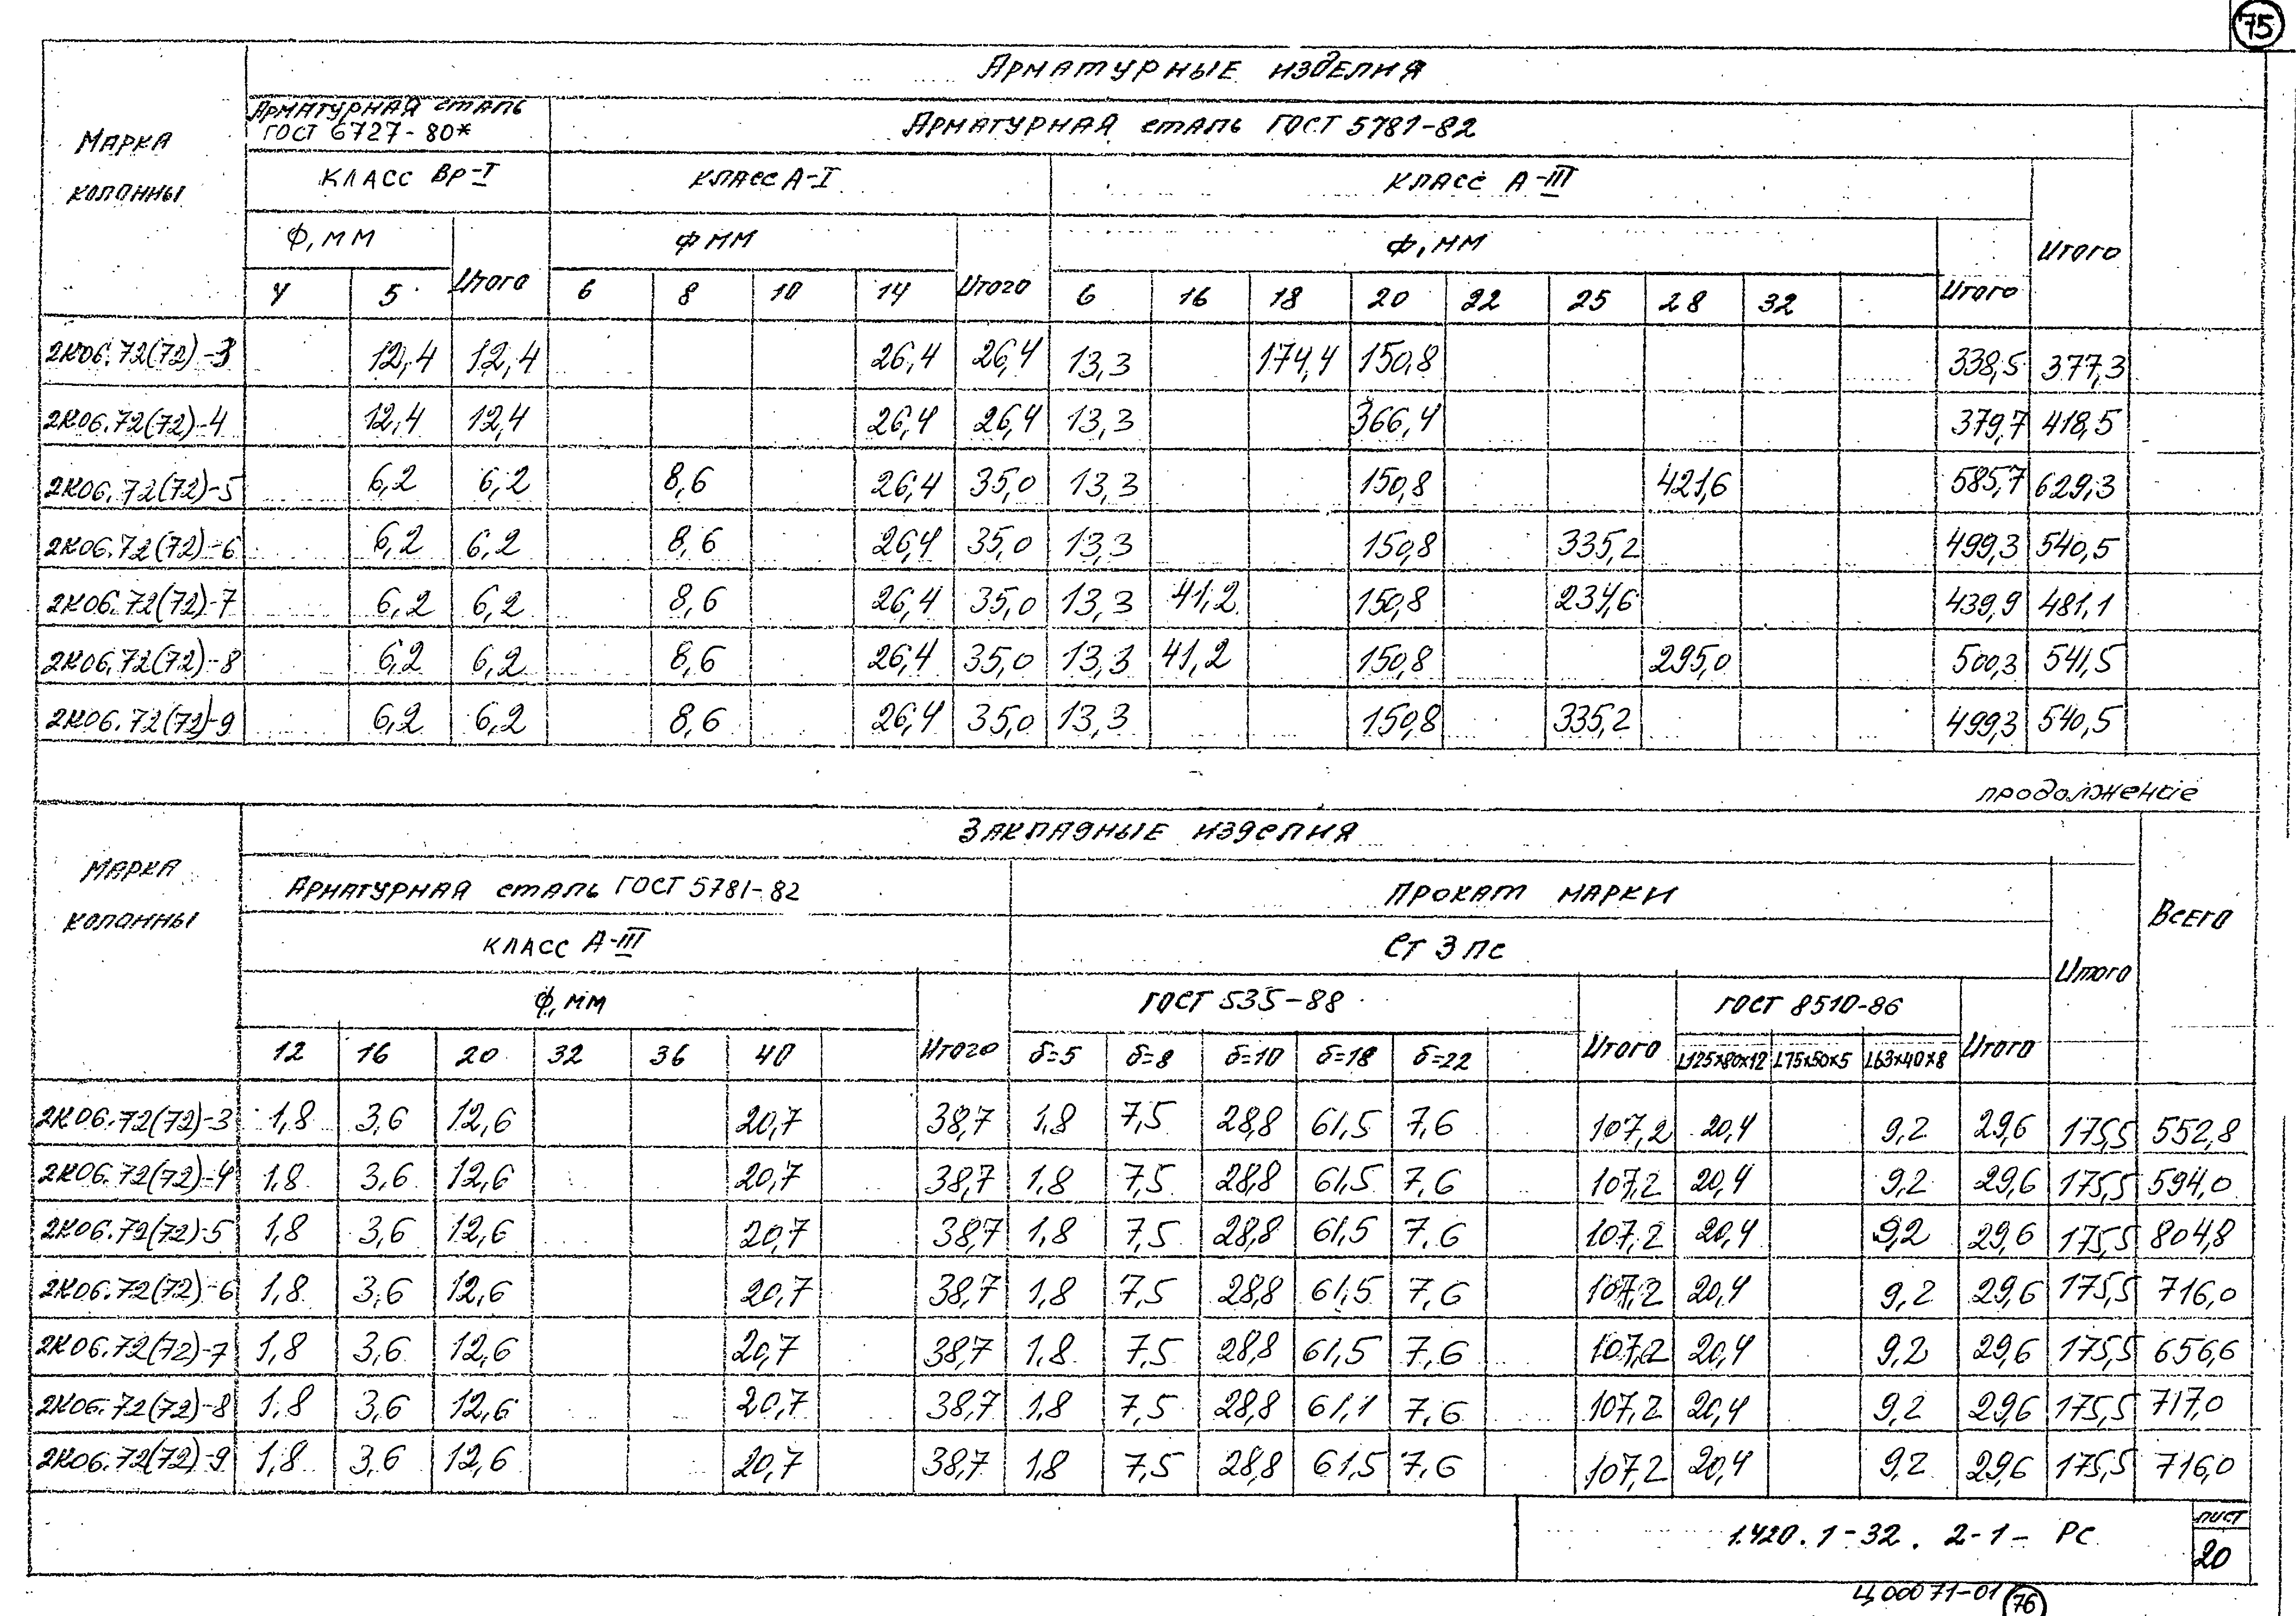 75
Арматурные изделия
Марка колонны
Арматурная сталь ГОСТ 6727-80*
Арматурная сталь ГОСТ 5781-82
Класс Вр-I
Класс А-I
Класс А-III
Ф, мм
Итого
Ф мм
Итого
Ф, мм
Итого
Итого
4 5 6 8 10 14 6 16 18 20 22 25 28 32
2К06.72(72)-3 12,4 12,4 26,4 26,4 13,3 174,4 150,8 338,5 377,3
2К06.72(72)-4 12,4 12,4 26,4 26,4 13,3 366,4 379,7 418,5
2К06.72(72)-5 6,2 6,2 8,6 26,4 35,0 13,3 150,8 421,6 585,7 629,3
2К06.72(72)-6 6,2 6,2 8,6 26,4 35,0 13,3 150,8 335,2 499,3 540,5
2К06.72(72)-7 6,2 6,2 8,6 26,4 35,0 13,3 41,2 150,8 234,6 439,9 481,1
2К06.72(72)-8 6,2 6,2 8,6 26,4 35,0 13,3 41,2 150,8 295,0 500,3 541,5
2К06.72(72)-9 6,2 6,2 8,6 26,4 35,0 13,3 150,8 335,2 499,3 540,5
продолжение
Закладные изделия
Марка колонны
Арматурная сталь ГОСТ 5781-82
Прокат марки
Всего
Класс А-III
Ст 3 пс
Итого
Ф, мм
Итого
ГОСТ 535-88
Итого
ГОСТ 8510-86
Итого
12 16 20 32 36 40 δ=5 δ=8 δ=10 δ=18 δ=22 L125х80х12 L75х50х5 L63х40х8
2К06.72(72)-3 1,8 3,6 12,6 20,7 38,7 1,8 7,5 28,8 61,5 7,6 107,2 20,4 9,2 29,6 175,5 552,8
2К06.72(72)-4 1,8 3,6 12,6 20,7 38,7 1,8 7,5 28,8 61,5 7,6 107,2 20,4 9,2 29,6 175,5 594,0
2К06.72(72)-5 1,8 3,6 12,6 20,7 38,7 1,8 7,5 28,8 61,5 7,6 107,2 20,4 9,2 29,6 175,5 804,8
2К06.72(72)-6 1,8 3,6 12,6 20,7 38,7 1,8 7,5 28,8 61,5 7,6 107,2 20,4 9,2 29,6 175,5 716,0
2К06.72(72)-7 1,8 3,6 12,6 20,7 38,7 1,8 7,5 28,8 61,5 7,6 107,2 20,4 9,2 29,6 175,5 656,6
2К06.72(72)-8 1,8 3,6 12,6 20,7 38,7 1,8 7,5 28,8 61,1 7,6 107,2 20,4 9,2 29,6 175,5 717,0
2К06.72(72)-9 1,8 3,6 12,6 20,7 38,7 1,8 7,5 28,8 61,5 7,6 107,2 20,4 9,2 29,6 175,5 716,0
1.420.1-32. 2-1- РС
лист
20
Ц00071-01 76